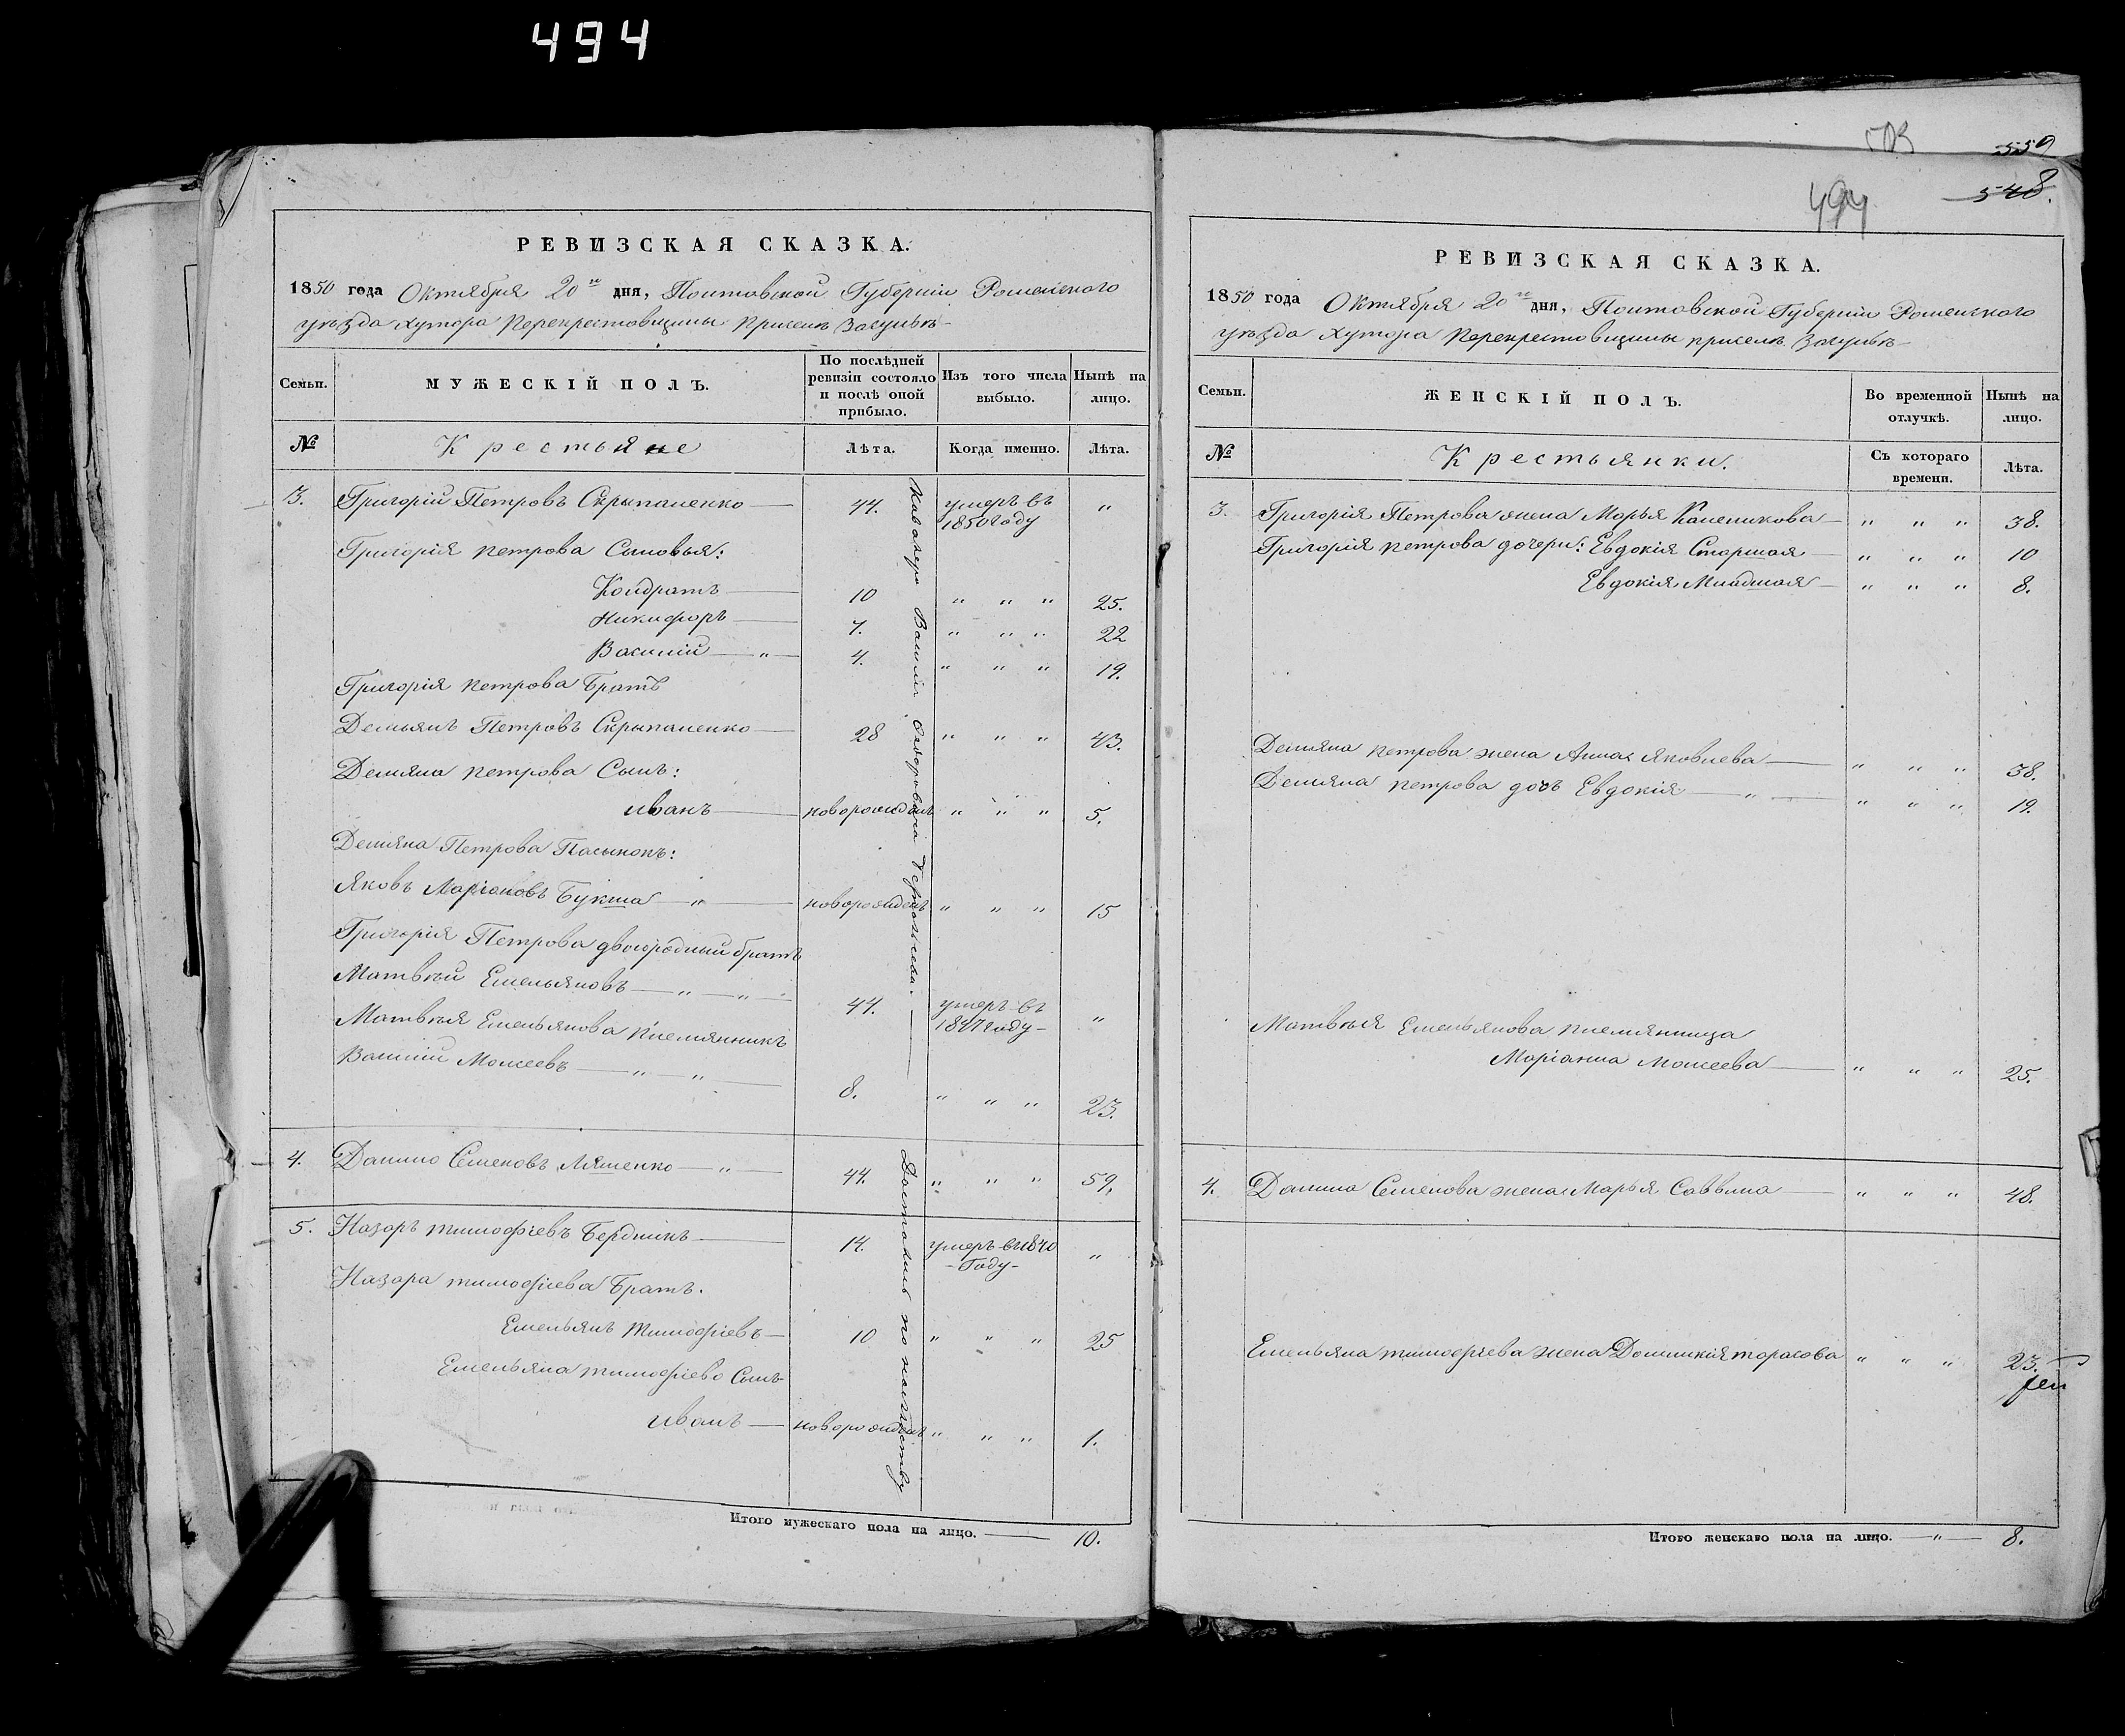 494
РЕВИЗСКАЯ СКАЗКА.
1850 года Октября 20го дня, Полтавской Губерніи Роменского
уѣзда хутора Перекрестовщины
Семьи.
МУЖЕСКІЙ ПОЛЪ.
По послѣдней ревизіи состояло и послѣ оной прибыло.
Изъ того числа выбыло.
Нынѣ на лицо.
№
Крестьяне
Лѣта.
Когда именно.
Лѣта.
3. Григорій Петровъ Скрыпаленко — 44. умеръ въ 1850 году "
Григорія петрова Сыновья:
Кондратъ — 10 " " " 25.
Никифоръ — 7. " " " 22
Василій — " — 4. " " " 19.
Григорія петрова Братъ
Демьянъ Петровъ Скрыпаленко — 28 " " " 43.
Демяна петрова Сынъ:
иванъ — новорожденъ " " " 5.
Демяна Петрова Пасынокъ:
Яковъ Маріановъ Букша — " — новорожденъ " " " 15
Григорія Петрова двоюродный братъ
Матвѣй Емельяновъ — " — " — 44. умеръ въ 1847 году - "
Матвѣя Емельянова племянникъ
Василій Моисеевъ — " — " — 8. " " " 23.
4. Данило Семеновъ Ляшенко — " — 44. " " " 59.
5. Назаръ тимофіевъ Бердникъ — 14. умеръ въ 1840 - Году - "
Назара тимофіева Братъ.
Емельянъ тимофіевъ — 10 " " " 25
Емельяна тимофіева Сынъ
иванъ — новорожденъ " " " 1.
Достались по наслѣдству
Итого мужескаго пола на лицо. — 10.
503
559
548.
494
РЕВИЗСКАЯ СКАЗКА.
1850 года Октября 20го дня, Полтавской Губерніи Роменского
уѣзда хутора Перекрестовщины
Семьи.
ЖЕНСКІЙ ПОЛЪ.
Во временной отлучкѣ.
Нынѣ на лицо.
№
Крестьянки.
Съ котораго времени.
Лѣта.
3. Григорія Петрова жена Марья — " " " 38.
Григорія петрова дочери: Евдокія Старшая — " " " 10
Евдокія Младшая — " " " 8.
Демяна петрова жена Анна Яковлева — " " " 38.
Демяна петрова дочъ Евдокія — " — " " " 19.
Матвѣя Емельянова племянница
Маріанна Моисеева — " " " 25.
4. Данила Семенова жена Марья Саввина — " " " 48.
Емельяна тимофіева жена Домникія тарасова " " " 23.
Итого женскаго пола на лицо. — " — 8.